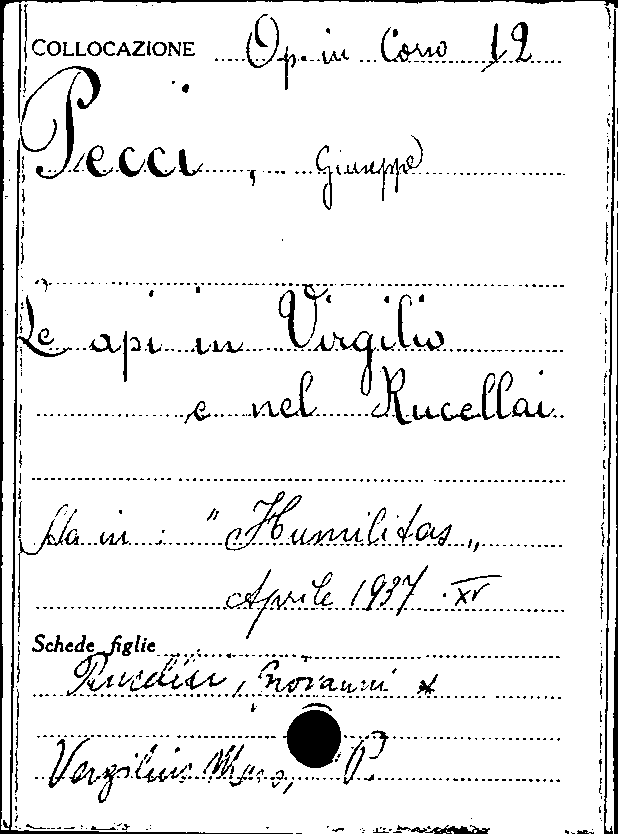 COLLOCAZIONE Op. in Corso 12
Pecci, Giuseppe
Le api in Virgilio
e nel Rucellai
Sta in: "Humilitas„
Aprile 1937. XV
Schede figlie
Rucellai, Giovanni *
Vergilius Maro, P.